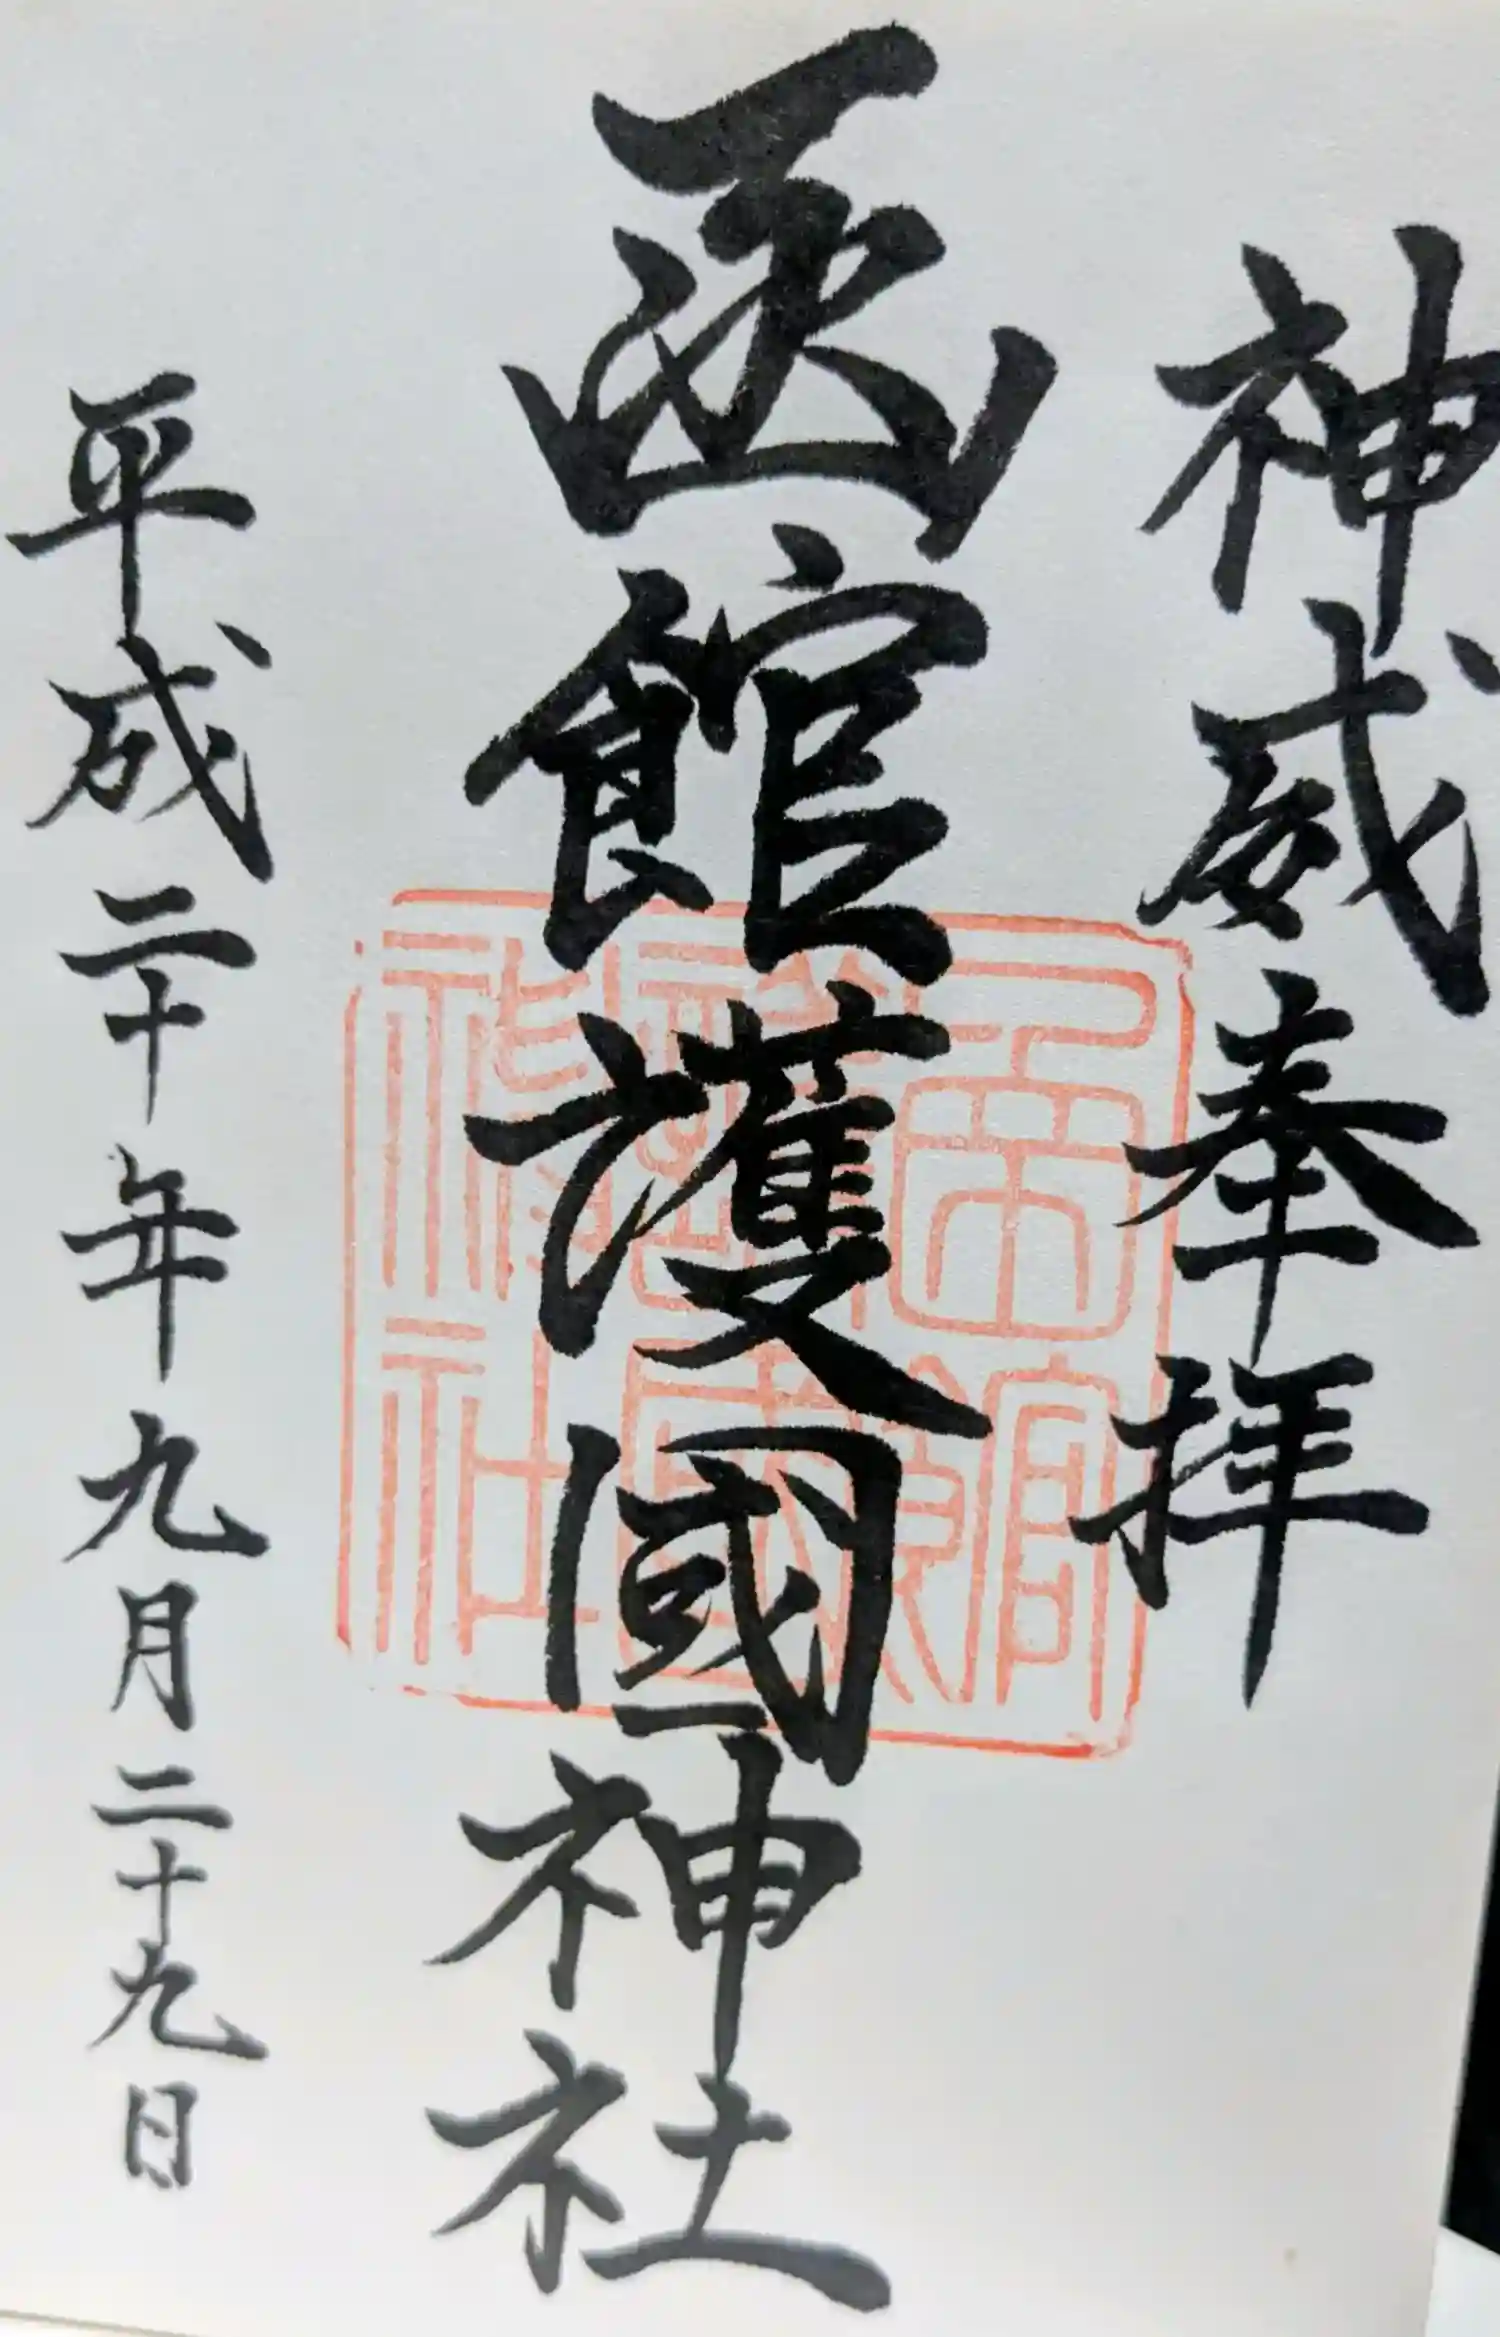 神威奉拝
函館護國神社
平成二十年九月二十九日
函館
護國
神社